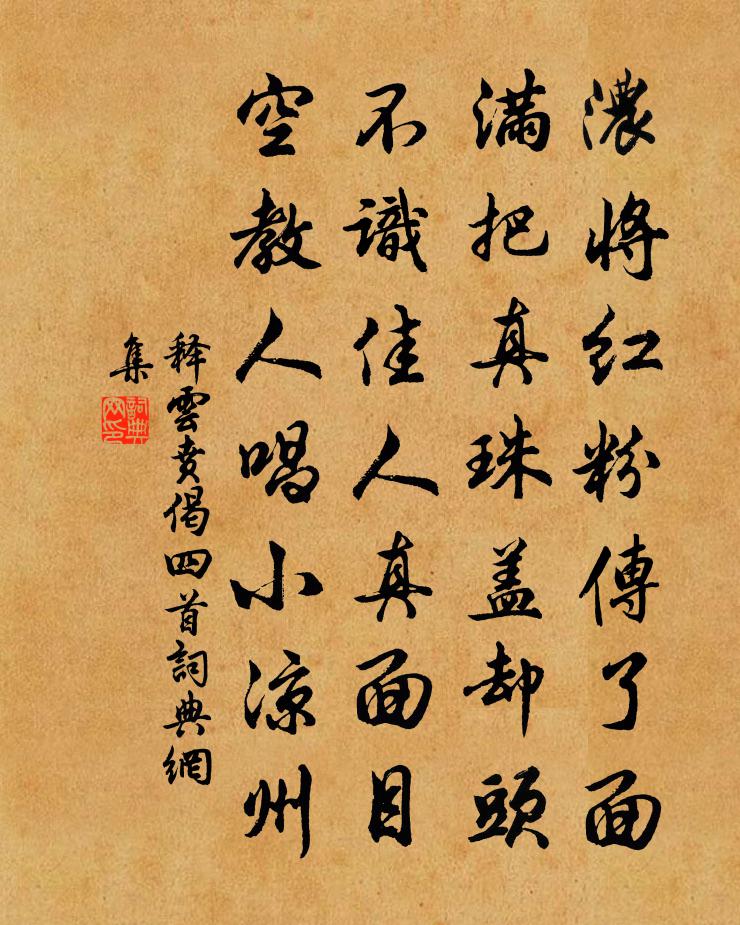 濃將紅粉傅了面
滿把真珠盖却頭
不識佳人真面目
空教人唱小凉州
释雲賁偈四首詞典網
集
詞典
网印